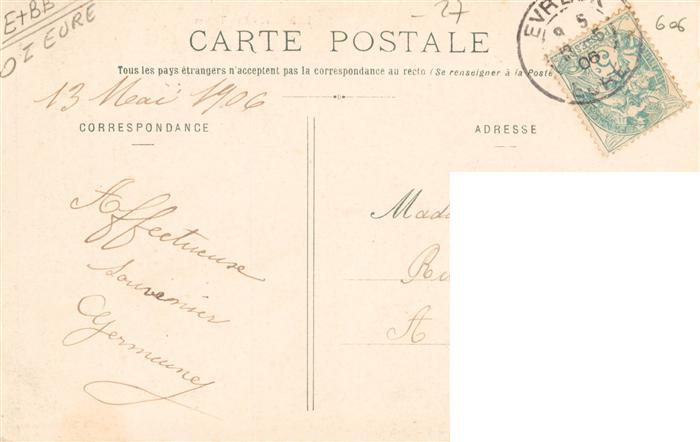 E+BB
OI EURE
27
606
CARTE POSTALE
Tous les pays étrangers n'acceptent pas la correspondance au recto (Se renseigner à la Poste
13 Mai 1906
CORRESPONDANCE
ADRESSE
EVREUX
5
06
EURE
Affectueuse
souvenir
Germaine
Mada
Ru
A